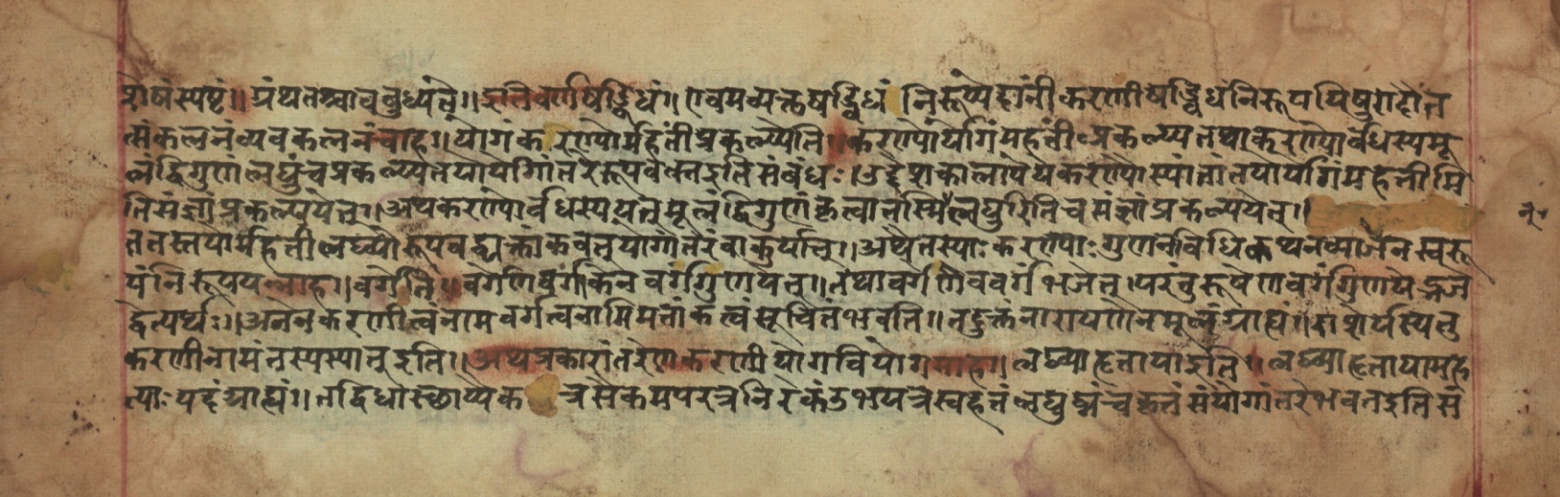 शेषं स्पष्टं ॥ ग्रंथतश्चावबुध्यंत् ॥ इतिवर्णषड्विधं ॥ एवमव्यक्तषड्विधं निरूप्येदानीं करणीषड्विधंनिरूपयिषुरादौत
त्संकलनंव्यवकलनंचाह ॥ योगं करण्योर्महतींप्रकल्प्येति ॥ करण्योर्योगंमहतींप्रकल्प्य तथाकरण्योर्वधस्यमू
लंद्विगुणंलघुंचप्रकल्प्यतयोर्योगांतरेरूपवत्स्तइतिसंबंधः ।
तिसंज्ञांप्रकल्पयेत् ॥ अथकरण्योर्वधस्ययत्मूलंद्विगुणंकृत्वातस्मिँल्लघुरितिचसंज्ञांप्रकल्पयेत् ॥
ततस्तयोर्महतीलघ्व्योरूपवद्व्यक्तांकवत्योगांतरंवाकुर्यात् ॥ अथैतस्याः करण्याः गुणनविधिकथनव्याजेनस्वरू
पंनिरूपयन्नाह ॥ वर्गेति ॥ वर्गेणवर्गांकेनवर्गंगुणयेत् ॥ तथावर्गेणैववर्गंभजेत् । परंतुरूपेणवर्गंगुणयेद्भजे
द्वेत्यर्थः ॥ अनेनकरणीत्वंनामवर्गत्वेनाभिमतांकत्वंसूचितंभवति ॥ तदुक्तंनारायणेनमूलंग्राह्यं ॥ राशेर्यस्यतु
करणीनामंतस्यस्यात् इति ॥ अथप्रकारांतरेणकरणीयोगवियोगमाह ॥ लघ्व्याहृतायाइति ॥ लघ्व्याहृतायामह
त्याः पदंग्राह्यं ॥ तद्द्विधास्थाप्य त्रसैकमपरत्रनिरेकं उभयत्रस्वहतंलघुघ्नंचकृतंसंयोगांतरेभवतइतिसं